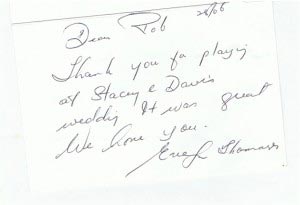 Dear Rob
Thank you for playing
at Stacey & Davis
wedding It was great
We love you.
Thomas